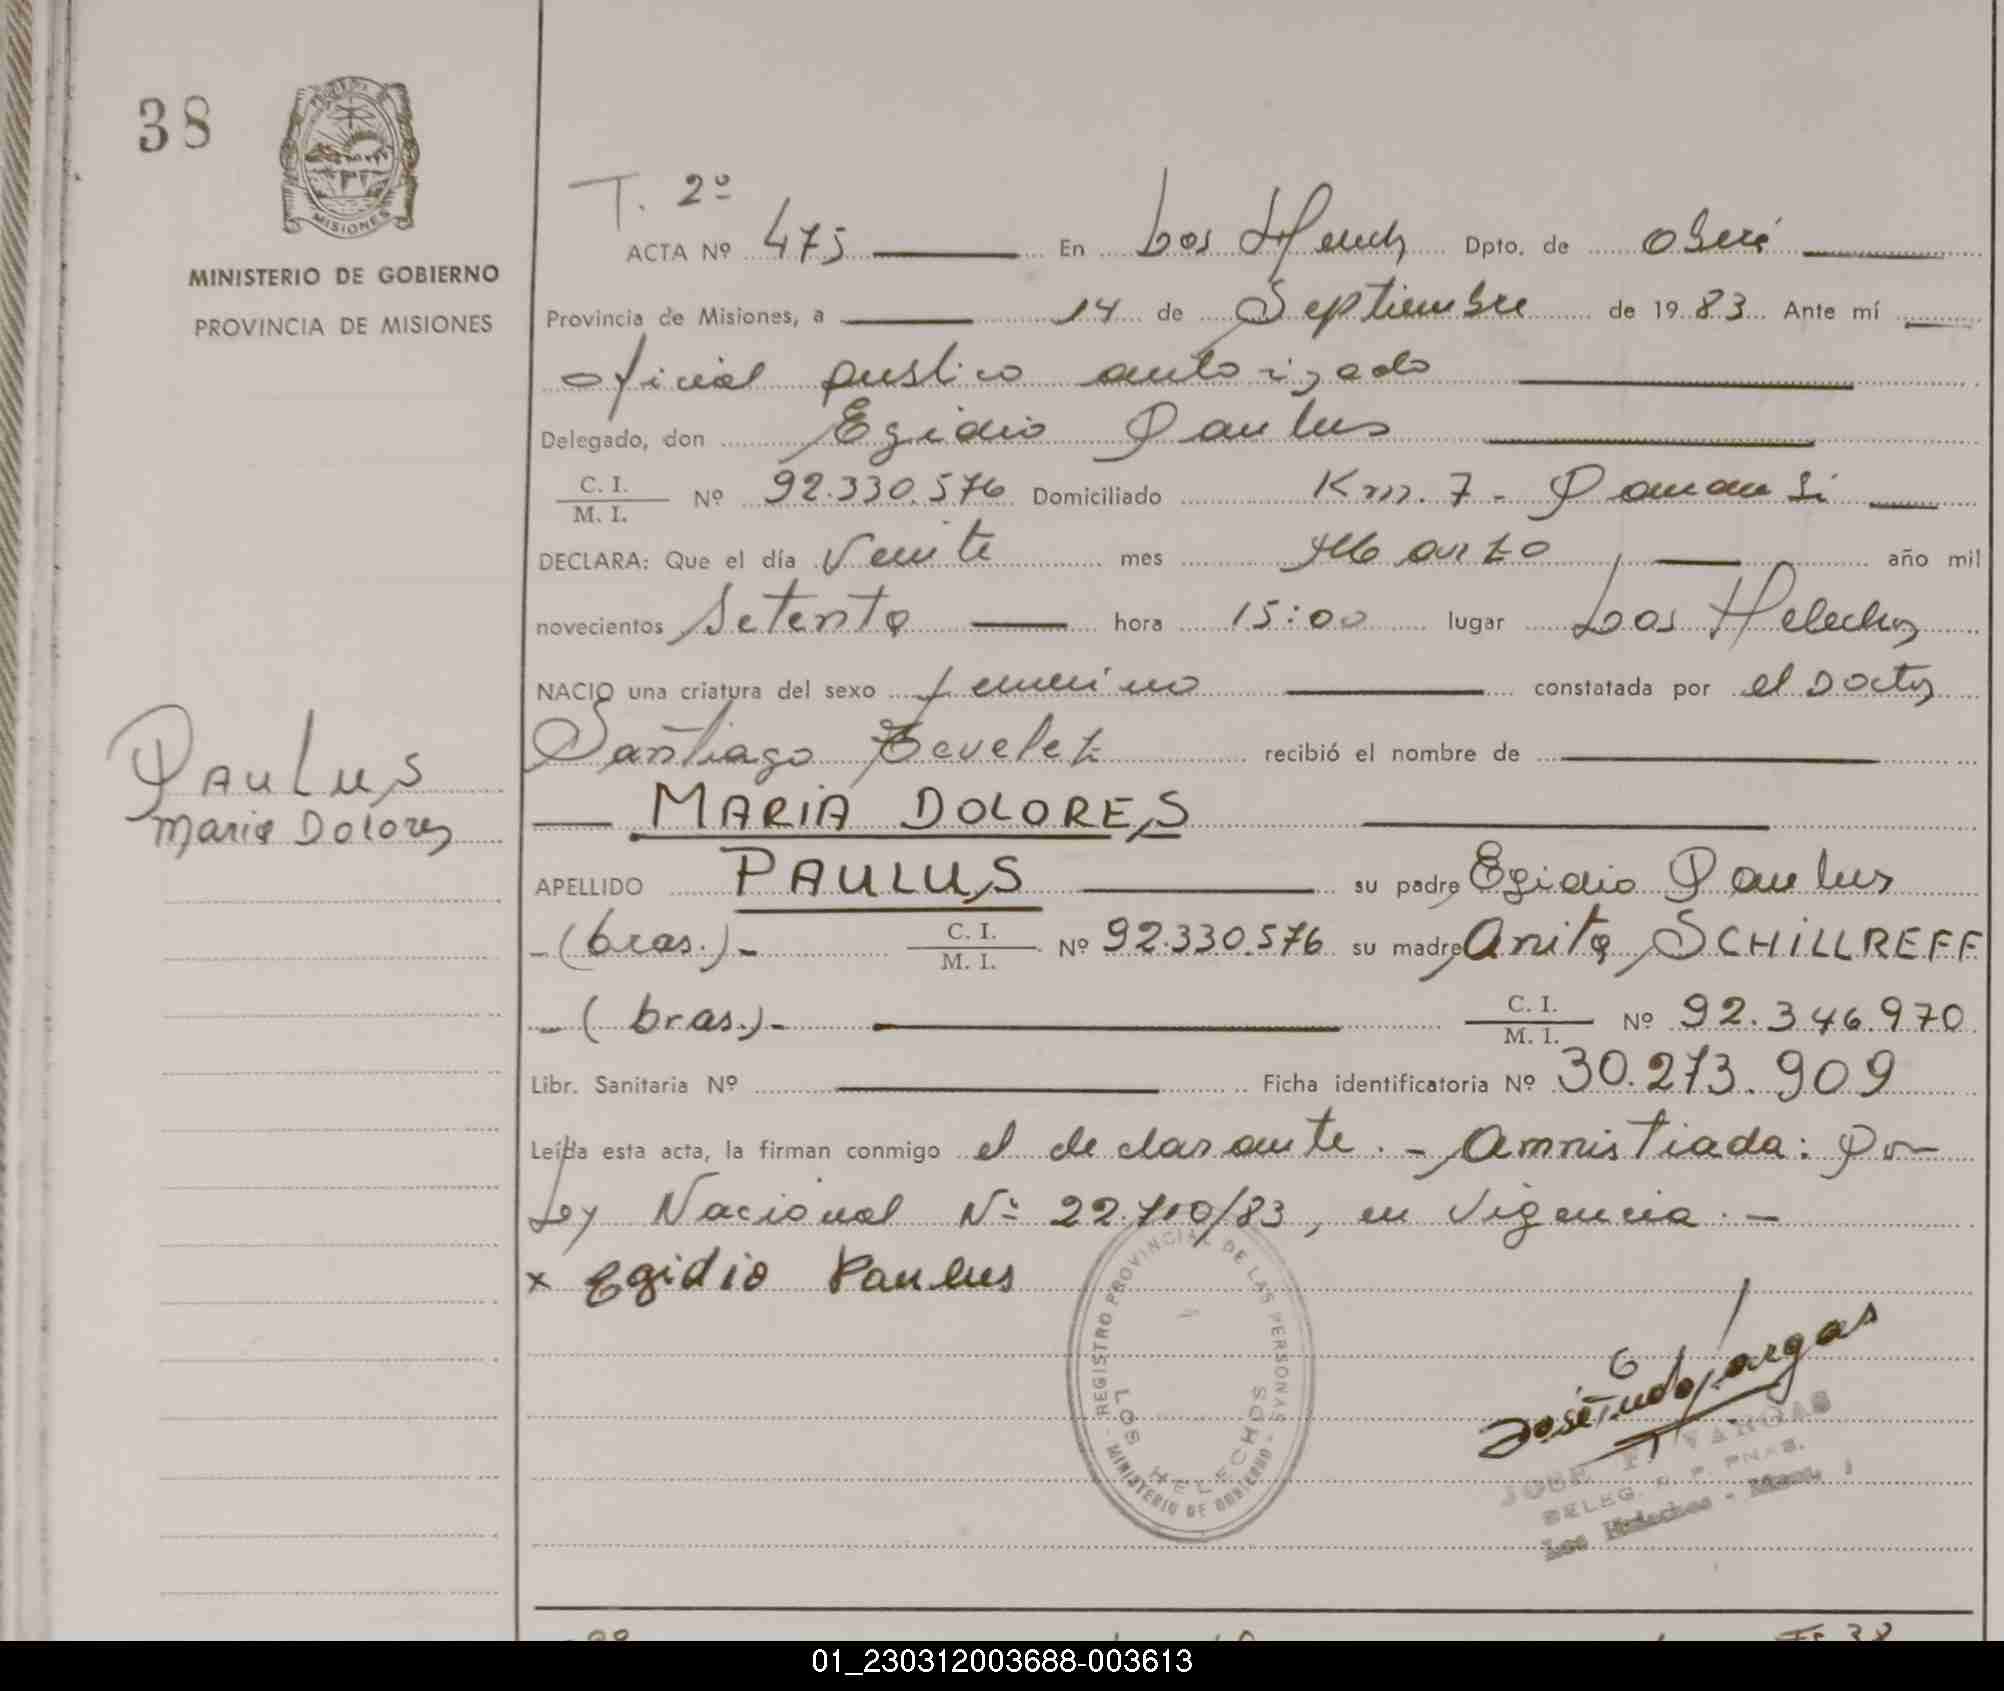 38
MISIONES
MINISTERIO DE GOBIERNO
PROVINCIA DE MISIONES
PAULUS
Maria Dolores
T. 2º
ACTA Nº 475 En Los Helech Dpto. de Oberá
Provincia de Misiones, a 14 de Septiembre de 1983 Ante mí
oficial publico autorizado
Delegado, don Egidio Paulus
C. I.
M. I. Nº 92.330.576 Domiciliado Km. 7 - Panambi
DECLARA: Que el día Veinte mes Marzo año mil
novecientos Setenta hora 15:00 lugar Los Helechos
NACIO una criatura del sexo femenino constatada por el Doctor
Santiago recibió el nombre de
MARIA DOLORES
APELLIDO PAULUS su padre Egidio Paulus
-(bras.)- C. I.
M. I. Nº 92.330.576 su madre Anita SCHILLREFF
-(bras.)- C. I.
M. I. Nº 92.346.970
Libr. Sanitaria Nº Ficha identificatoria Nº 30.273.909
Leída esta acta, la firman conmigo el declarante. - Amnistiada: Por
Ley Nacional Nº 22.710/83, en vigencia. -
x Egidio Paulus
REGISTRO PROVINCIAL DE LAS PERSONAS
LOS HELECHOS
- MINISTERIO DE GOBIERNO -
José Vargas
JOSE T. VARGAS
DELEG. R. P. PNAS.
Los Helechos - Mnes.
01_230312003688-003613